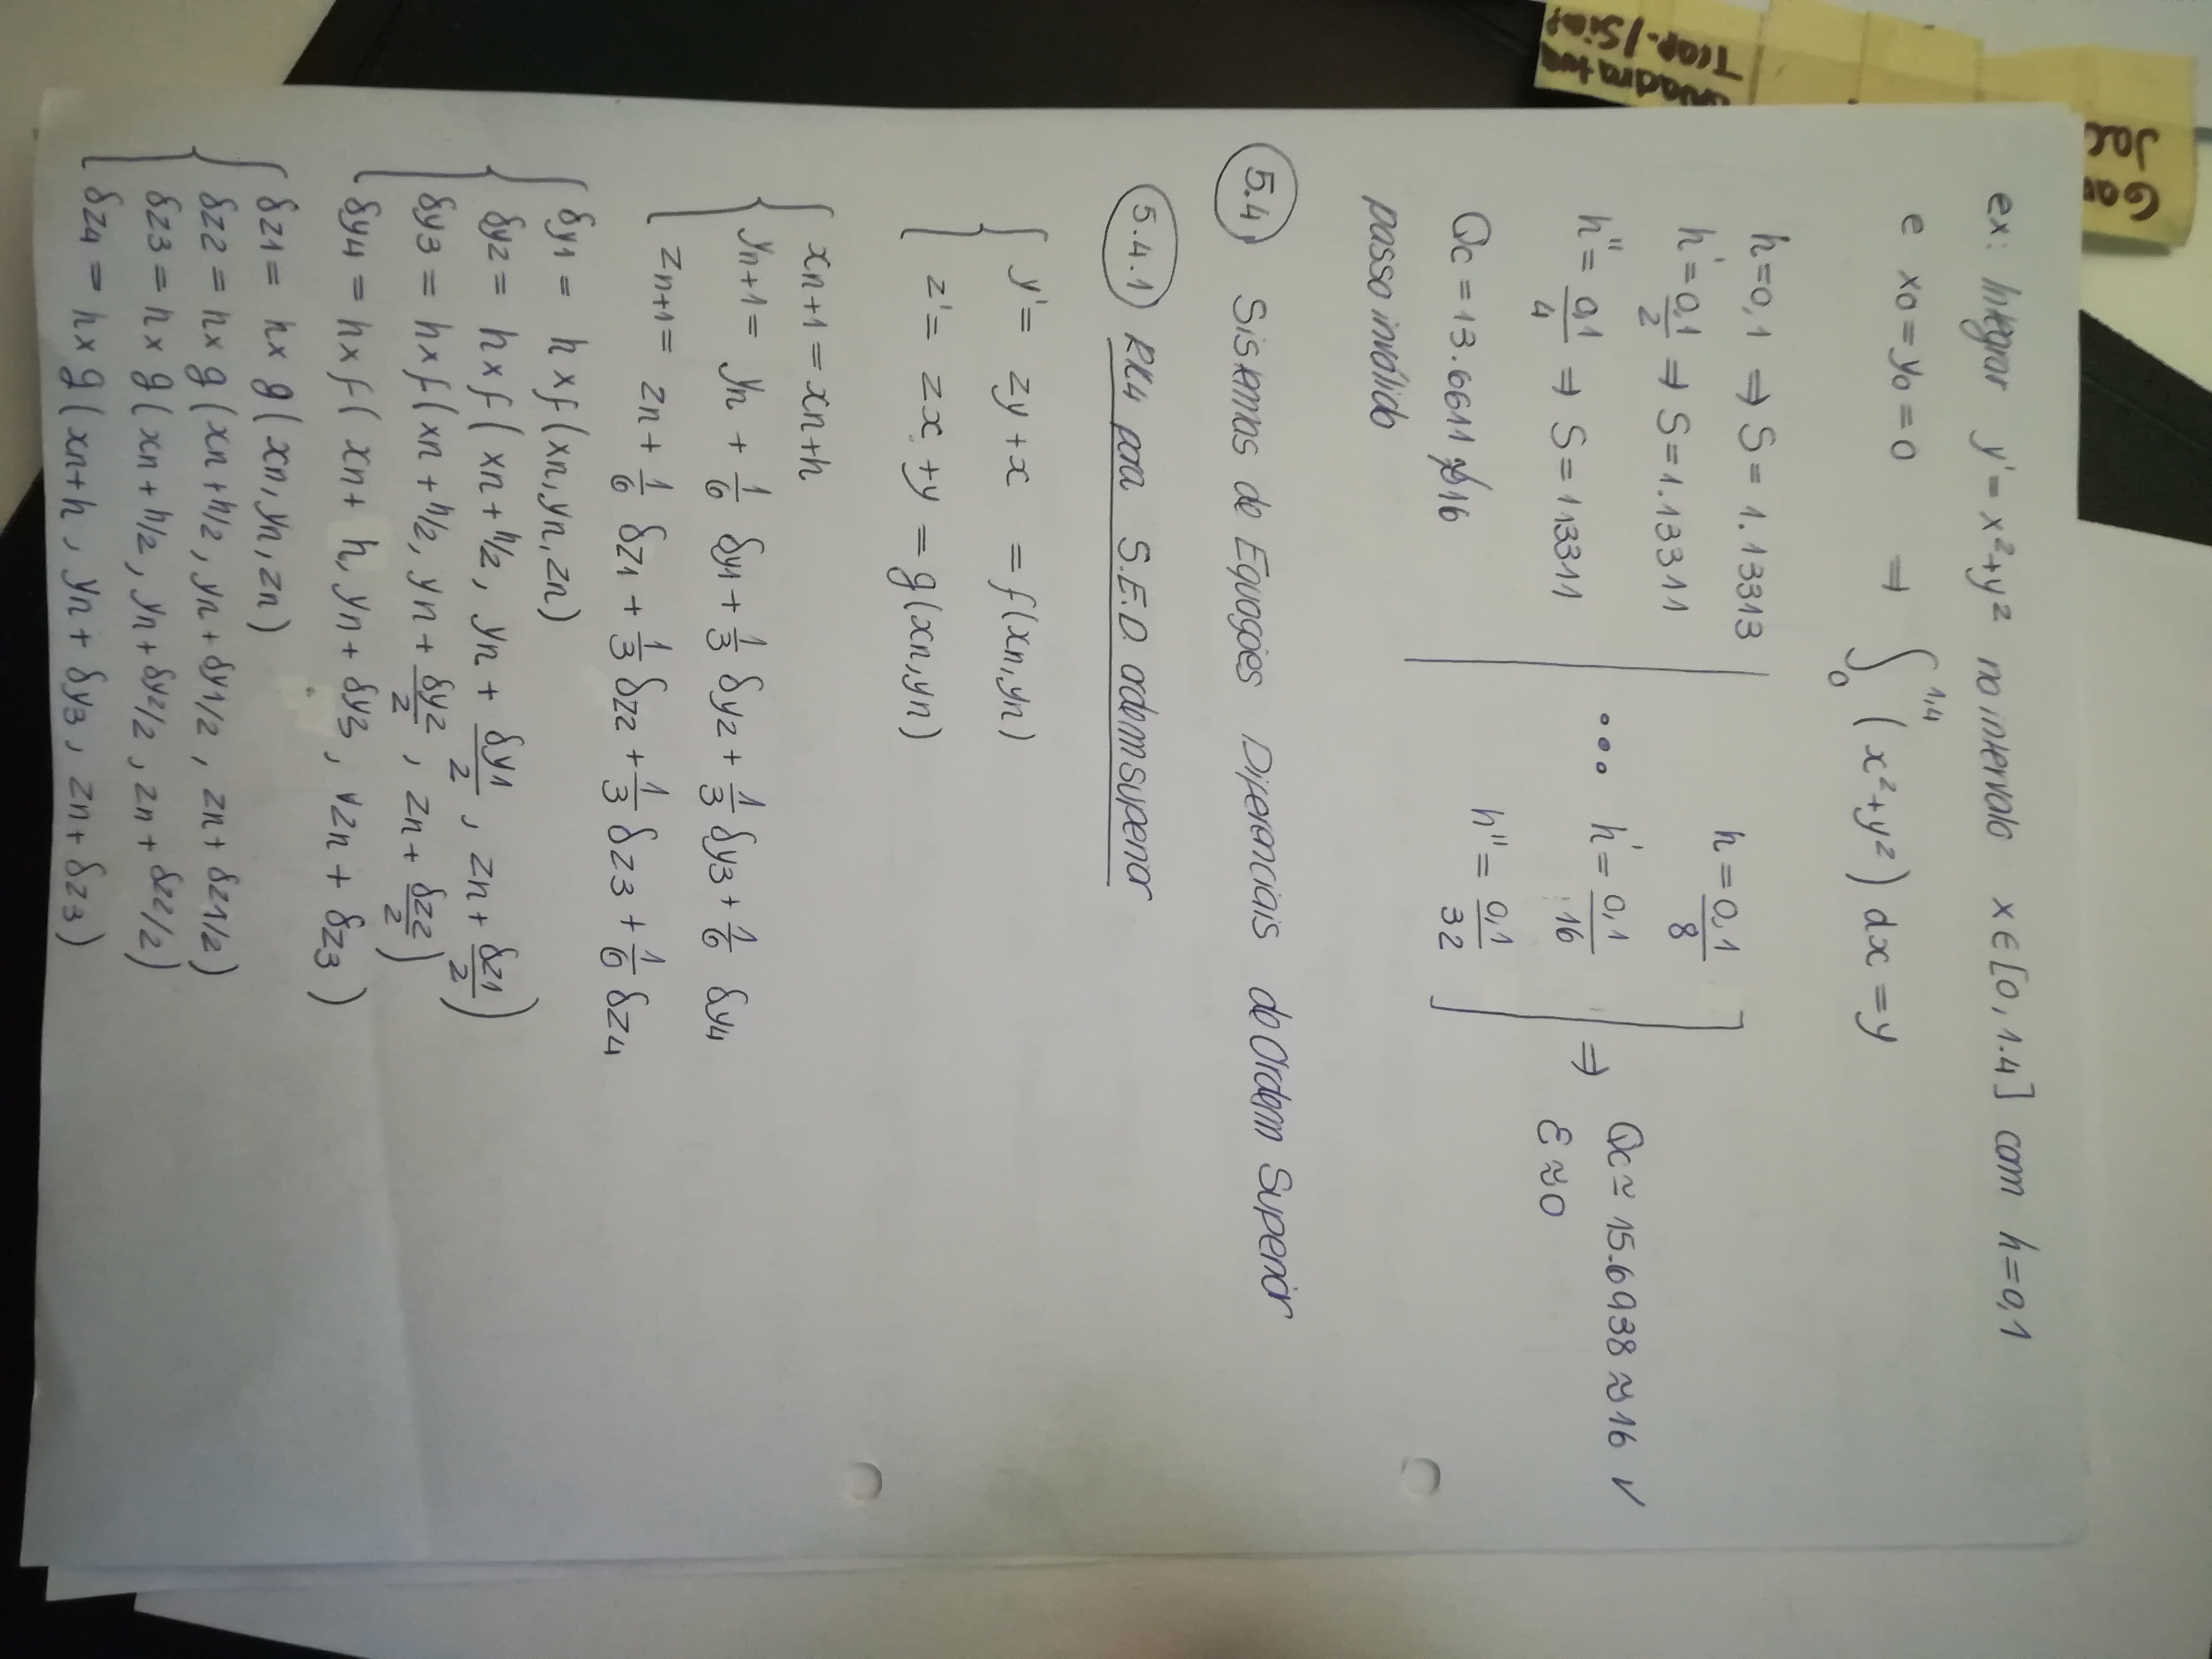 Gau
Jac
Quadratura
Trap./Simp
ex: Integrar y' = x²+y² no intervalo x∈[0, 1.4] com h=0,1
e x0 = y0 = 0 ⇒ ∫₀^1,4 (x²+y²) dx = y
h=0,1 ⇒ S = 1.13313
h' = 0,1/2 ⇒ S=1.13311
h'' = 0,1/4 ⇒ S = 1.13311
Qc = 13.6611 ≉ 16
passo inválido
...
h = 0,1/8
h' = 0,1/16
h'' = 0,1/32
⇒ Qc ≃ 15.6938 ≈ 16 ✓
ε ≈ 0
5.4 Sistemas de Equações Diferenciais de Ordem Superior
5.4.1 RK4 para S.E.D. ordem superior
y' = zy + x = f(xn, yn)
z' = zx + y = g(xn, yn)
xn+1 = xn+h
yn+1 = yn + 1/6 δy1 + 1/3 δy2 + 1/3 δy3 + 1/6 δy4
zn+1 = zn + 1/6 δz1 + 1/3 δz2 + 1/3 δz3 + 1/6 δz4
δy1 = h × f(xn, yn, zn)
δy2 = h × f( xn + h/2, yn + δy1/2, zn + δz1/2)
δy3 = h × f(xn + h/2, yn + δy2/2, zn + δz2/2)
δy4 = h × f( xn + h, yn + δy3, zn + δz3)
δz1 = h × g(xn, yn, zn)
δz2 = h × g(xn + h/2, yn + δy1/2, zn + δz1/2)
δz3 = h × g(xn + h/2, yn + δy2/2, zn + δz2/2)
δz4 = h × g(xn+h, yn + δy3, zn + δz3)